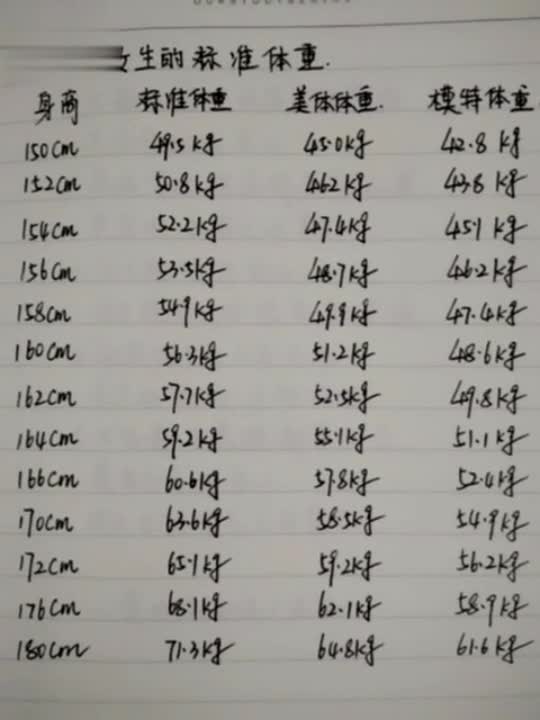 女生的标准体重.
身高 标准体重 美体体重. 模特体重
150cm 49.5kg 45.0kg 42.8kg
152cm 50.8kg 46.2kg 43.8kg
154cm 52.2kg 47.4kg 45.1kg
156cm 53.5kg 48.7kg 46.2kg
158cm 54.9kg 49.9kg 47.4kg
160cm 56.3kg 51.2kg 48.6kg
162cm 57.7kg 52.5kg 49.8kg
164cm 59.2kg 55.1kg 51.1kg
166cm 60.6kg 57.8kg 52.4kg
170cm 63.6kg 58.5kg 54.9kg
172cm 65.1kg 59.2kg 56.2kg
176cm 68.1kg 62.1kg 58.9kg
180cm 71.3kg 64.8kg 61.6kg